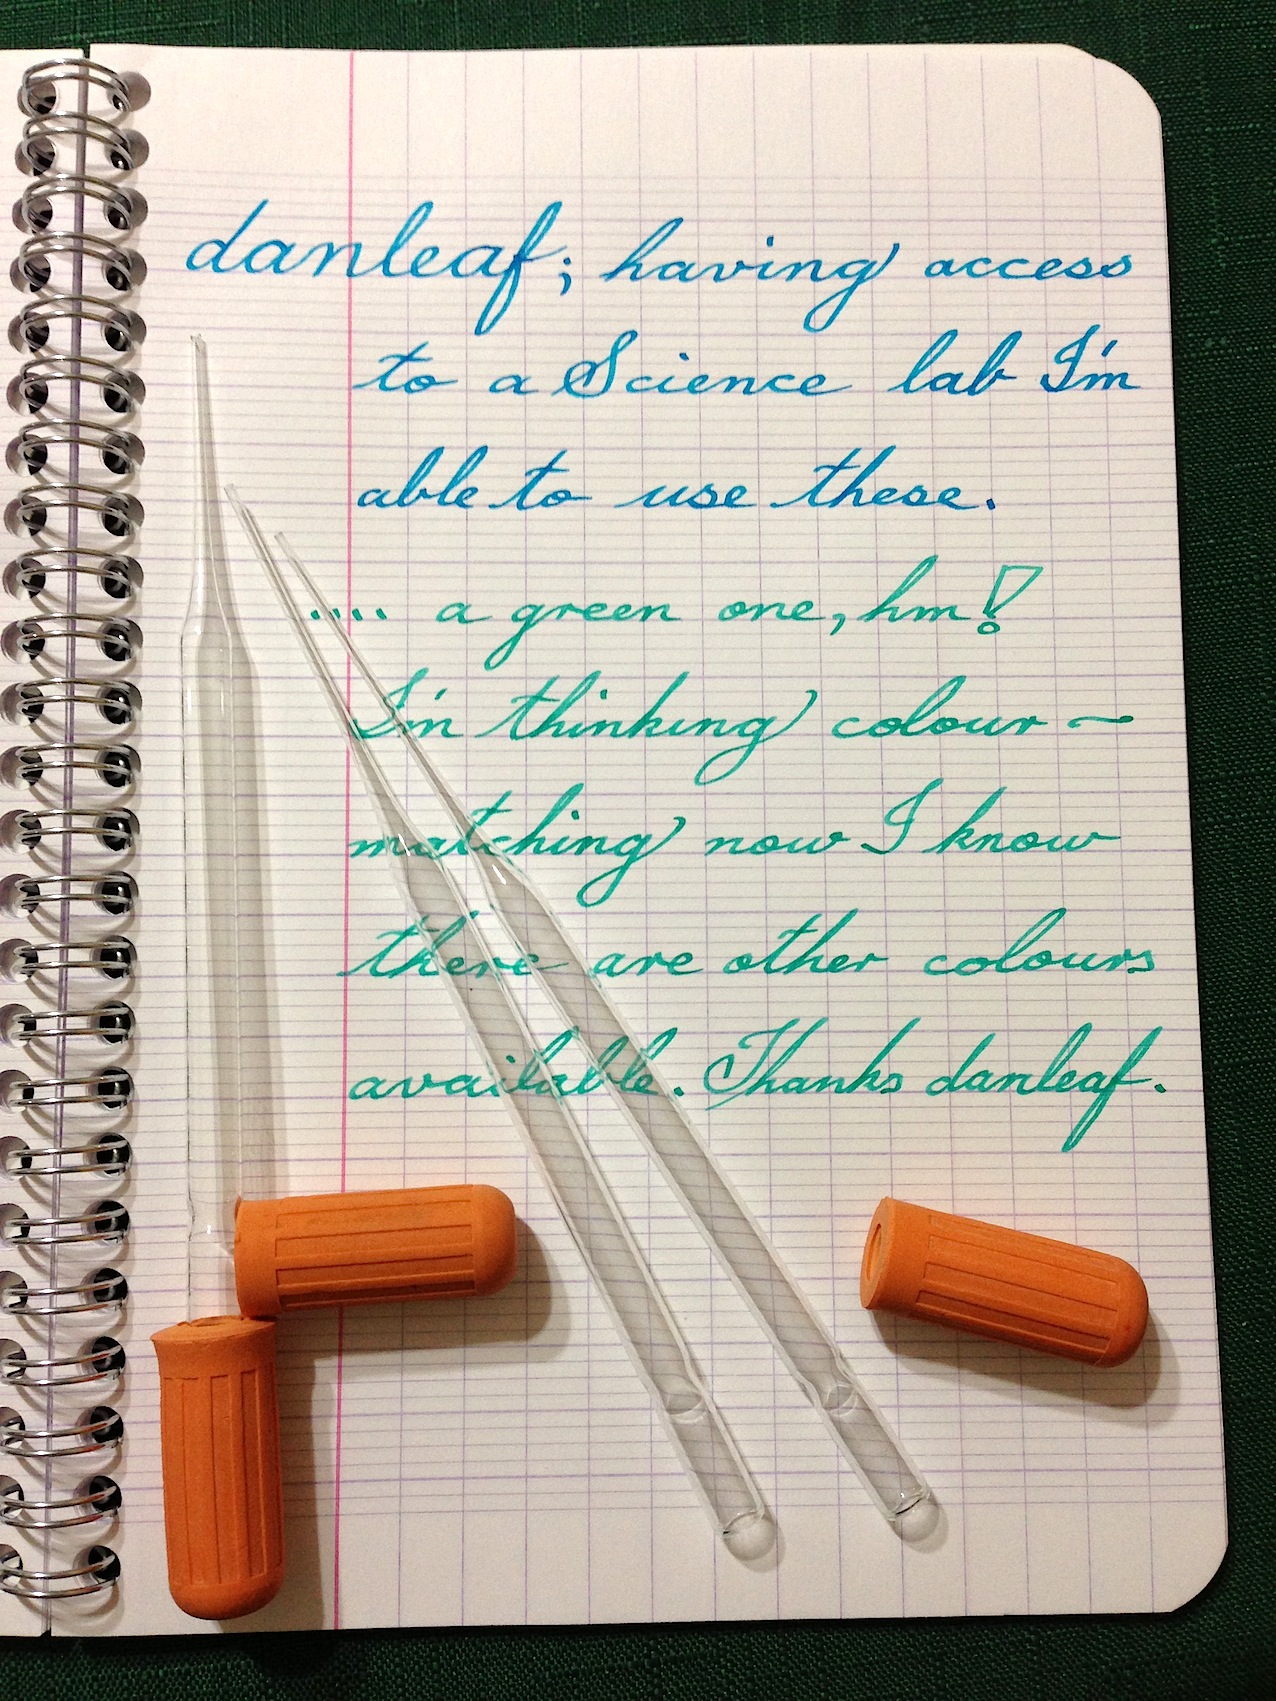 danleaf; having access
to a Science lab I'm
able to use these.
.... a green one, hm!
I'm thinking colour ~
matching now I know
there are other colours
available. Thanks danleaf.